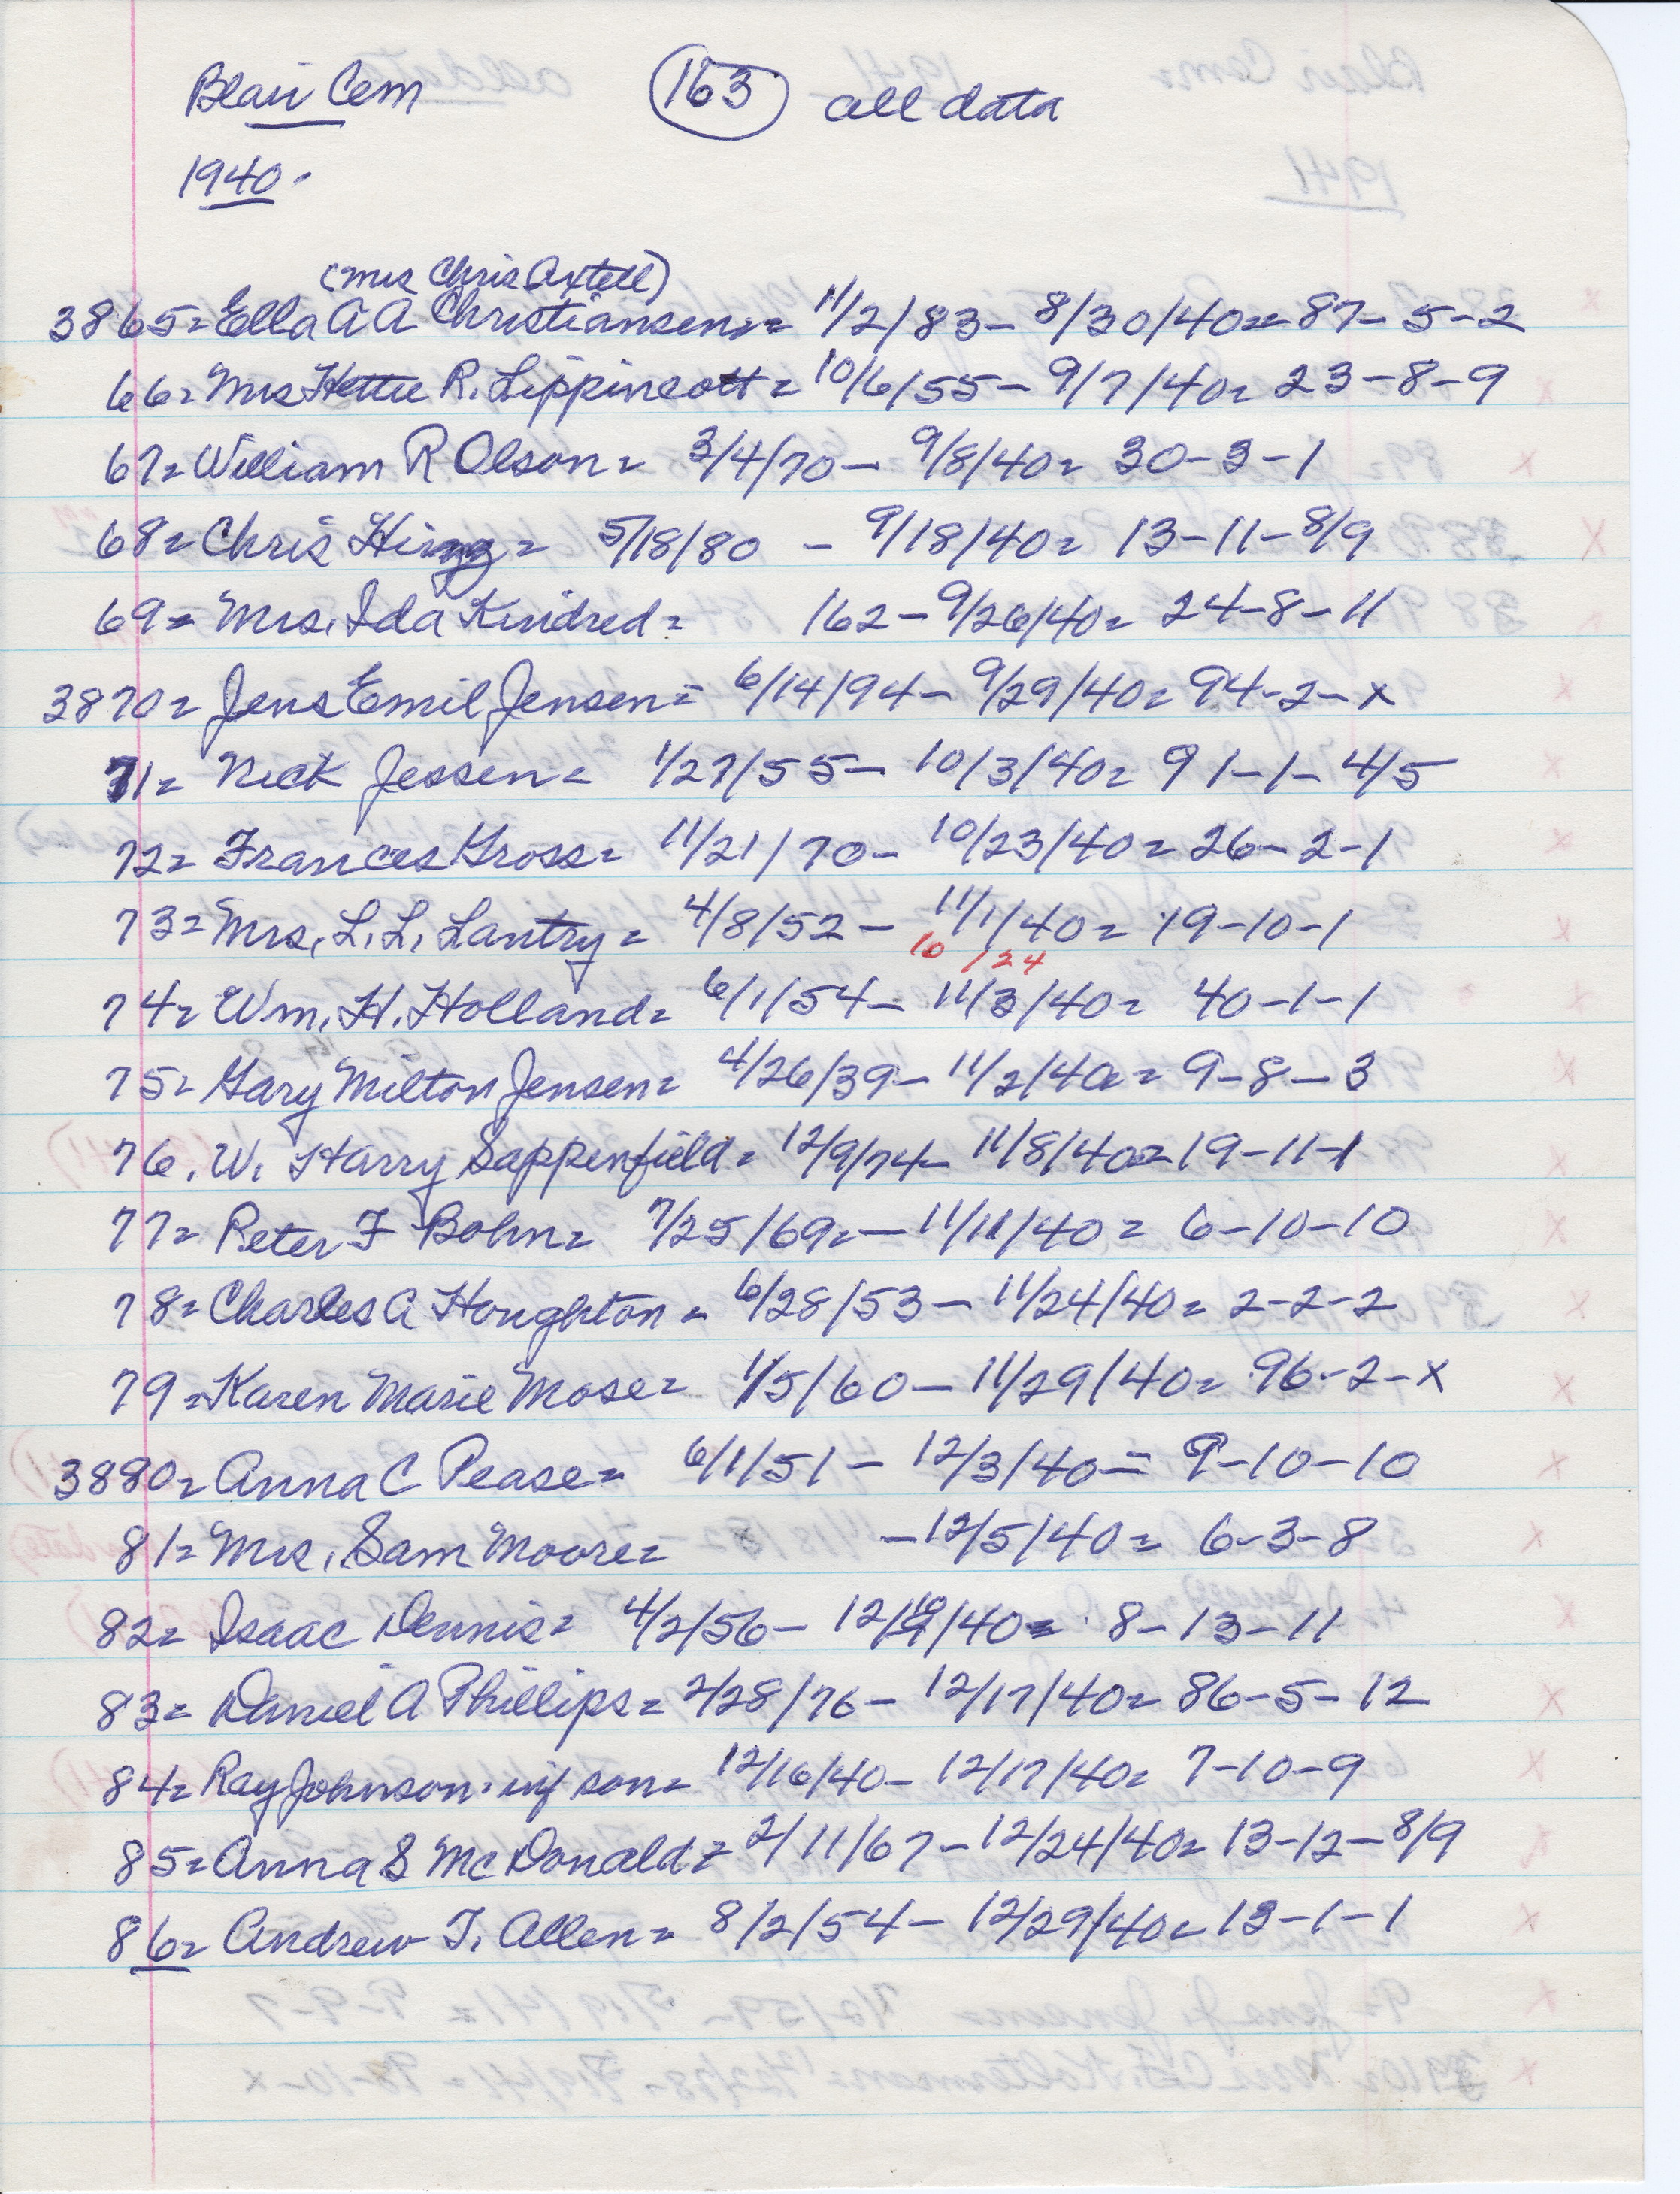 Blair Cem (163) all data
1940.
(Mrs Chris Axtell)
3865= Ella A A Christiansen= 11/2/83- 8/30/40= 87-5-2
66= Mrs Hettie R. Lippincott= 10/6/55- 9/7/40= 23-8-9
67= William R Olson= 3/4/70- 9/8/40= 30-3-1
68= Chris = 5/18/80 - 9/18/40= 13-11-8/9
69= Mrs. Ida Kindred= 162-9/26/40= 24-8-11
3870= Jens Emil Jensen= 6/14/94- 9/29/40= 94-2-x
71= Nick Jessen= 1/27/55- 10/3/40= 91-1-4/5
72= Frances Gross= 11/21/70- 10/23/40= 26-2-1
73= Mrs. L. L. Lantry= 4/8/52- 11/1/40= 19-10-1
10/24
74= Wm. H. Holland= 6/1/54- 11/3/40= 40-1-1
75= Gary Milton Jensen= 4/26/39- 11/2/40= 9-8-3
76. W. Harry Sappenfield= 12/9/74- 11/8/40= 19-11-1
77= Peter F Bohn= 7/25/69=- 11/11/40= 6-10-10
78= Charles A Houghton= 6/28/53- 11/24/40= 2-2-2
79= Karen Marie Mose= 1/5/60- 11/29/40= 96-2-x
3880= Anna C Pease= 6/1/51- 12/3/40= 9-10-10
81= Mrs. Sam Moore= -12/5/40= 6-3-8
82= Isaac Dennis= 4/2/56- 12/ /40= 8-13-11
83= Daniel A Phillips= 2/28/76- 12/17/40= 86-5-12
84= Ray Johnson. inf son= 12/16/40- 12/17/40= 7-10-9
85= Anna S McDonald= 2/11/67- 12/24/40= 13-12-8/9
86= Andrew T. Allen= 8/2/54- 12/29/40= 13-1-1